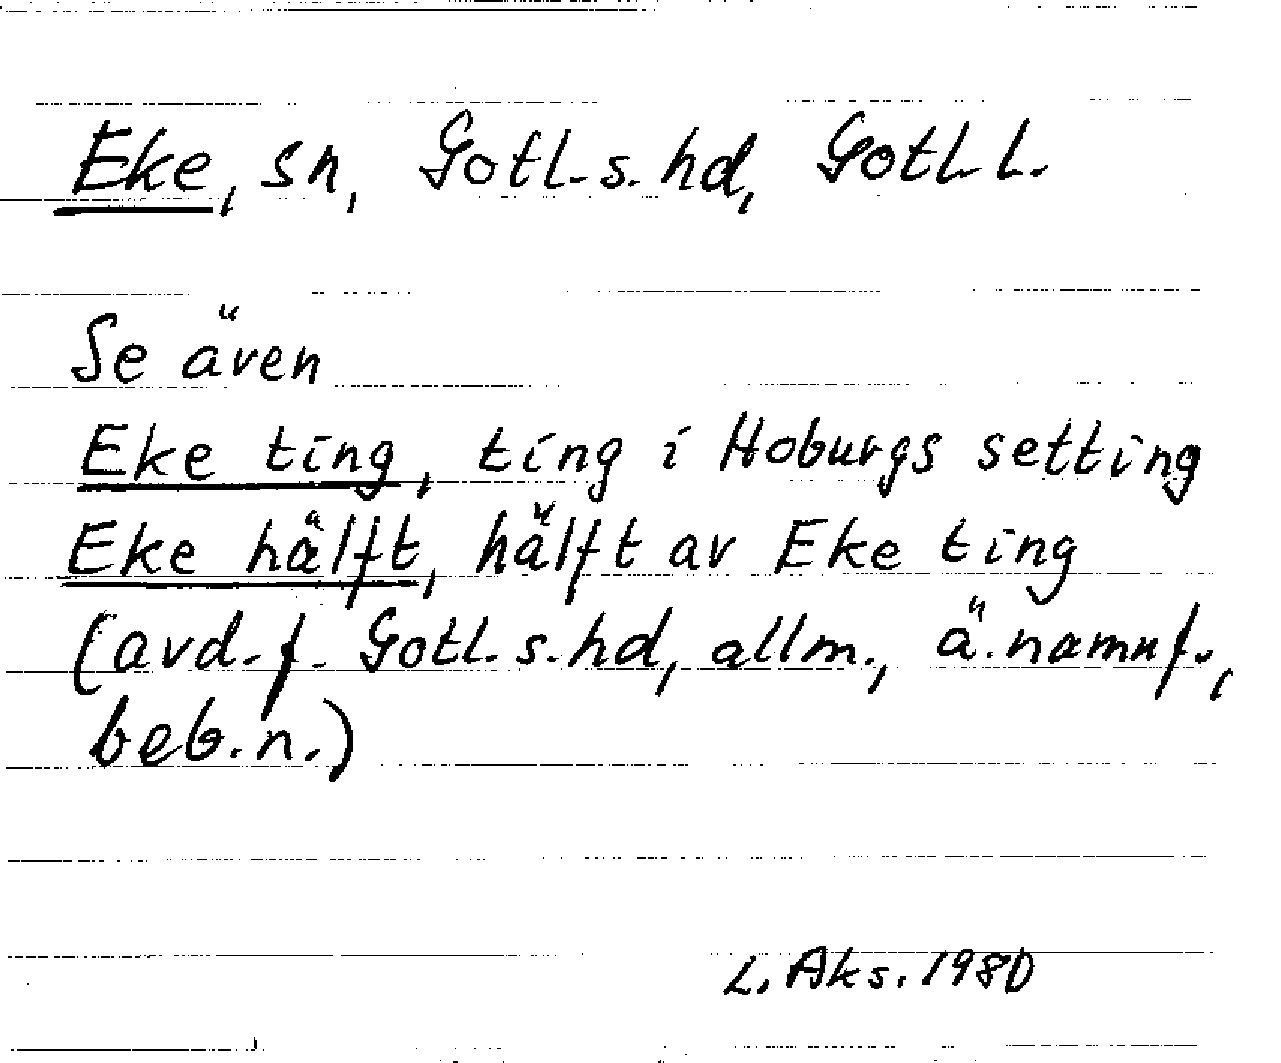 Eke, sn, Gotl. s. hd, Gotl. l.
Se även
Eke ting, ting i Hoburgs setting
Eke hälft, hälft av Eke ting
(avd. f. Gotl. s. hd, allm., ä. namnf.,
beb.n.)
L. Aks. 1980